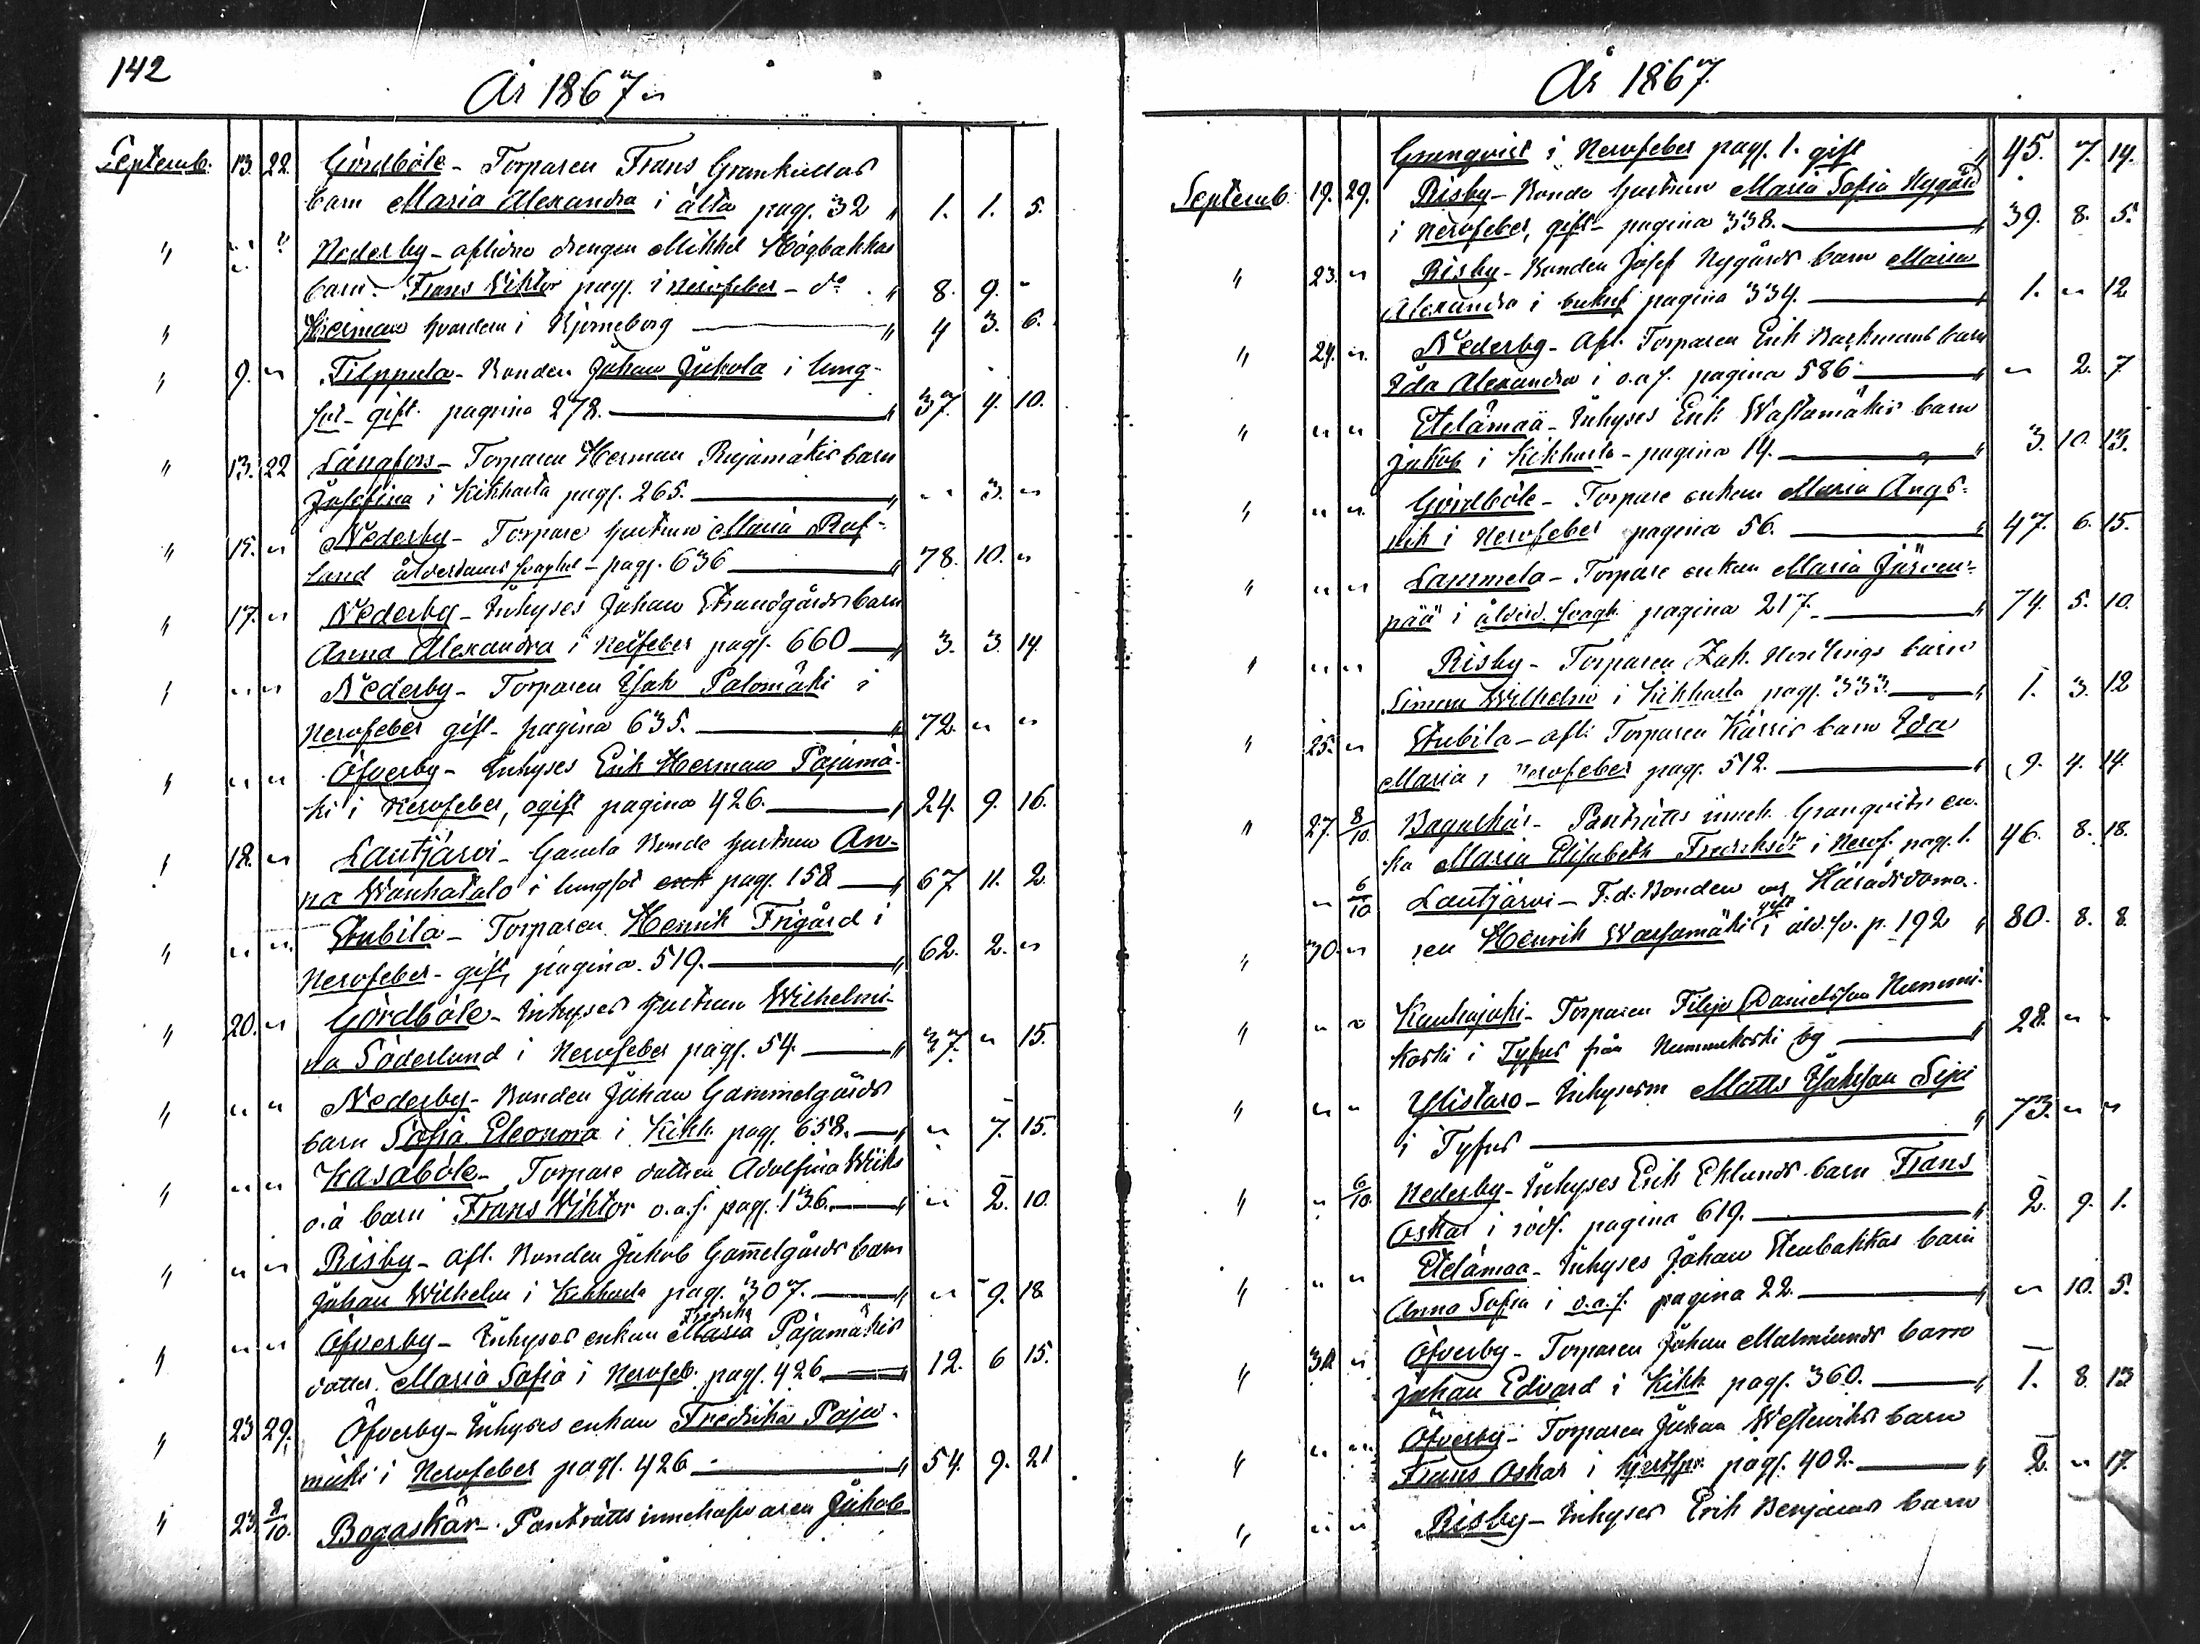 142
År 1867
Septemb. 13. 22. Gördböle - Torparen Frans Grankullas
barn Maria Alexandra i älta pag. 32 " 1. 1. 5.
" " " Nederby - aflidne drengen Mikkel Högbackas
barn Frans Viktor pag. i Nervfeber - do " 8. 9. -
" i Björneborg " 4 3. 6.
" 9. " Tilppula - Bonden Johan Jukola i lung-
sot - gift. pagina 278. " 37. 4. 10.
" 13. 22 Långfors - Torparen Herman Rajamäkis barn
Josefina i Kikhosta pag. 265. " - 3. "
" 15. " Nederby - Torpare hustrun Maria Ref-
land ålderdoms svaghet - pag. 636 " 78. 10. "
" 17. " Nederby - Inhyses Johan Strandgårds barn
Anna Alexandra i pag. 660 " 3. 3. 14.
" " " Nederby - Torparen Isak Palomäki i
Nervfeber gift - pagina 635. " 72. " "
" " " Öfverby - Inhyses Erik Herman Pajamä-
ki i Nervfeber, ogift pagina 426. " 24. 9. 16.
" 18. " Lautjärvi - Gamla Bonde hustrun An-
na Wanhatalo i lungsot pag. 158 " 67 11. 2.
" " " Stubila - Torparen Henrik Frigård i
Nervfeber - gift, pagina 519. " 62. 2. "
" 20. " Gördböle - Inhyses hustrun Wilhelmi-
na Söderlund i Nervfeber pag. 54. " 37. " 15.
" " " Nederby - Bonden Johan Gammelgårds
barn Sofia Eleonora i Kikh. pag. 658. " " 7. 15.
" " " Kasaböle - Torpare dottren Adolfina Wiiks
o.ä barn Frans Viktor o.a.s. pag. 136. " " 2. 10.
" " " Risby - Afl. Bonden Jakob Gamelgårds barn
Johan Wilhelm i Kikhosta pag. 307. " " 9. 18
" " " Öfverby - Inhyses enkan Maria Fredrika Pajamäkis
dotter Maria Sofia i Nervfeb. pag. 426 " 12. 6 15.
" 23 29. Öfverby - Inhyses enkan Fredrika Paja-
mäki i Nervfeber pag. 426 " 54. 9. 21
" 23. 8/10. Bogaskär - Panträtts innehafvaren Jakob
År 1867
Granqvist i Nervfeber pag. 1. gift " 45. 7. 14.
Septemb. 19. 29. Risby - Bonde hustrun Maria Sofia Nygård
i Nervfeber, gift - pagina 338. " 39. 8. 5.
" 23. " Risby - Bonden Josef Nygårds barn Maria
Alexandra i pagina 334. " 1. " 12
" 24. " Nederby - Afl. Torparen Erik Backmans barn
Ida Alexandra i o.a.s. pagina 586 " " 2. 7
" " " Etelämaa - Inhyses Erik Wastamäkis barn
Jakob i Kikhosta - pagina 14. " 3. 10. 13.
" " " Gördböle - Torpare enkan Maria Angs-
i Nervfeber pagina 56. " 47. 6. 15.
" " " Lammela - Torpare enkan Maria Järven-
pää i ålderd. svagh. pagina 217. " 74. 5. 10.
" " " Risby - Torparen Zak. Norlings barn
Simon Wilhelm i Kikhosta pag. 333. " 1. 3. 12
" 25. " Stubila - afl. Torparen Kärris barn Ida
Maria i Nervfeber pag. 512. " 9. 4. 14.
" 27. 8/10. Bagaskär - Panträtts inneh. Granqvists en-
ka Maria Elisabeth Fredriksdr i Nervf. pag. 1. 46. 8. 18.
" 6/10 Lautjärvi - F.d. Bonden och Häradsdoma-
" 30. " ren Henrik Wassamäki gift i åld.sv. p. 192 " 80. 8. 8.
" " " Kauhajoki - Torparen Filip Danielsson Nummi-
koski i Tyfus från Nummikoski by " 28. " "
" " " Ylistaro - Inhysesm. Matts Isaksson Sipi
i Tyfus " 73. " "
" " 6/10 Nederby - Inhyses Erik Eklunds barn Frans
Oskar i röds. pagina 619. " 2. 9. 1.
" " " Etelämaa - Inhyses Johan Stenbackas barn
Anna Sofia i o.a.s. pagina 22. " " 10. 5.
" 30 " Öfverby - Torparen Johan Malmlunds barn
Johan Edvard i Kikh. pag. 360. " 1. 8. 13
" " " Öfverby - Torparen Johan Westerviks barn
Frans Oskar i pag. 402. " 2. " 17.
" " " Risby - Inhyses Erik Benjams barn